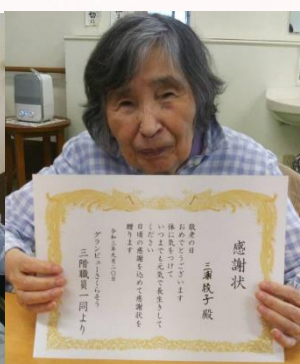 感謝状
三浦 殿
敬老の日
おめでとうございます
体に気をつけて
いつまでも元気で長生きして
ください
日頃の感謝を込めて感謝状を
贈ります
令和三年九月二〇日
グランビュー
三階職員一同より